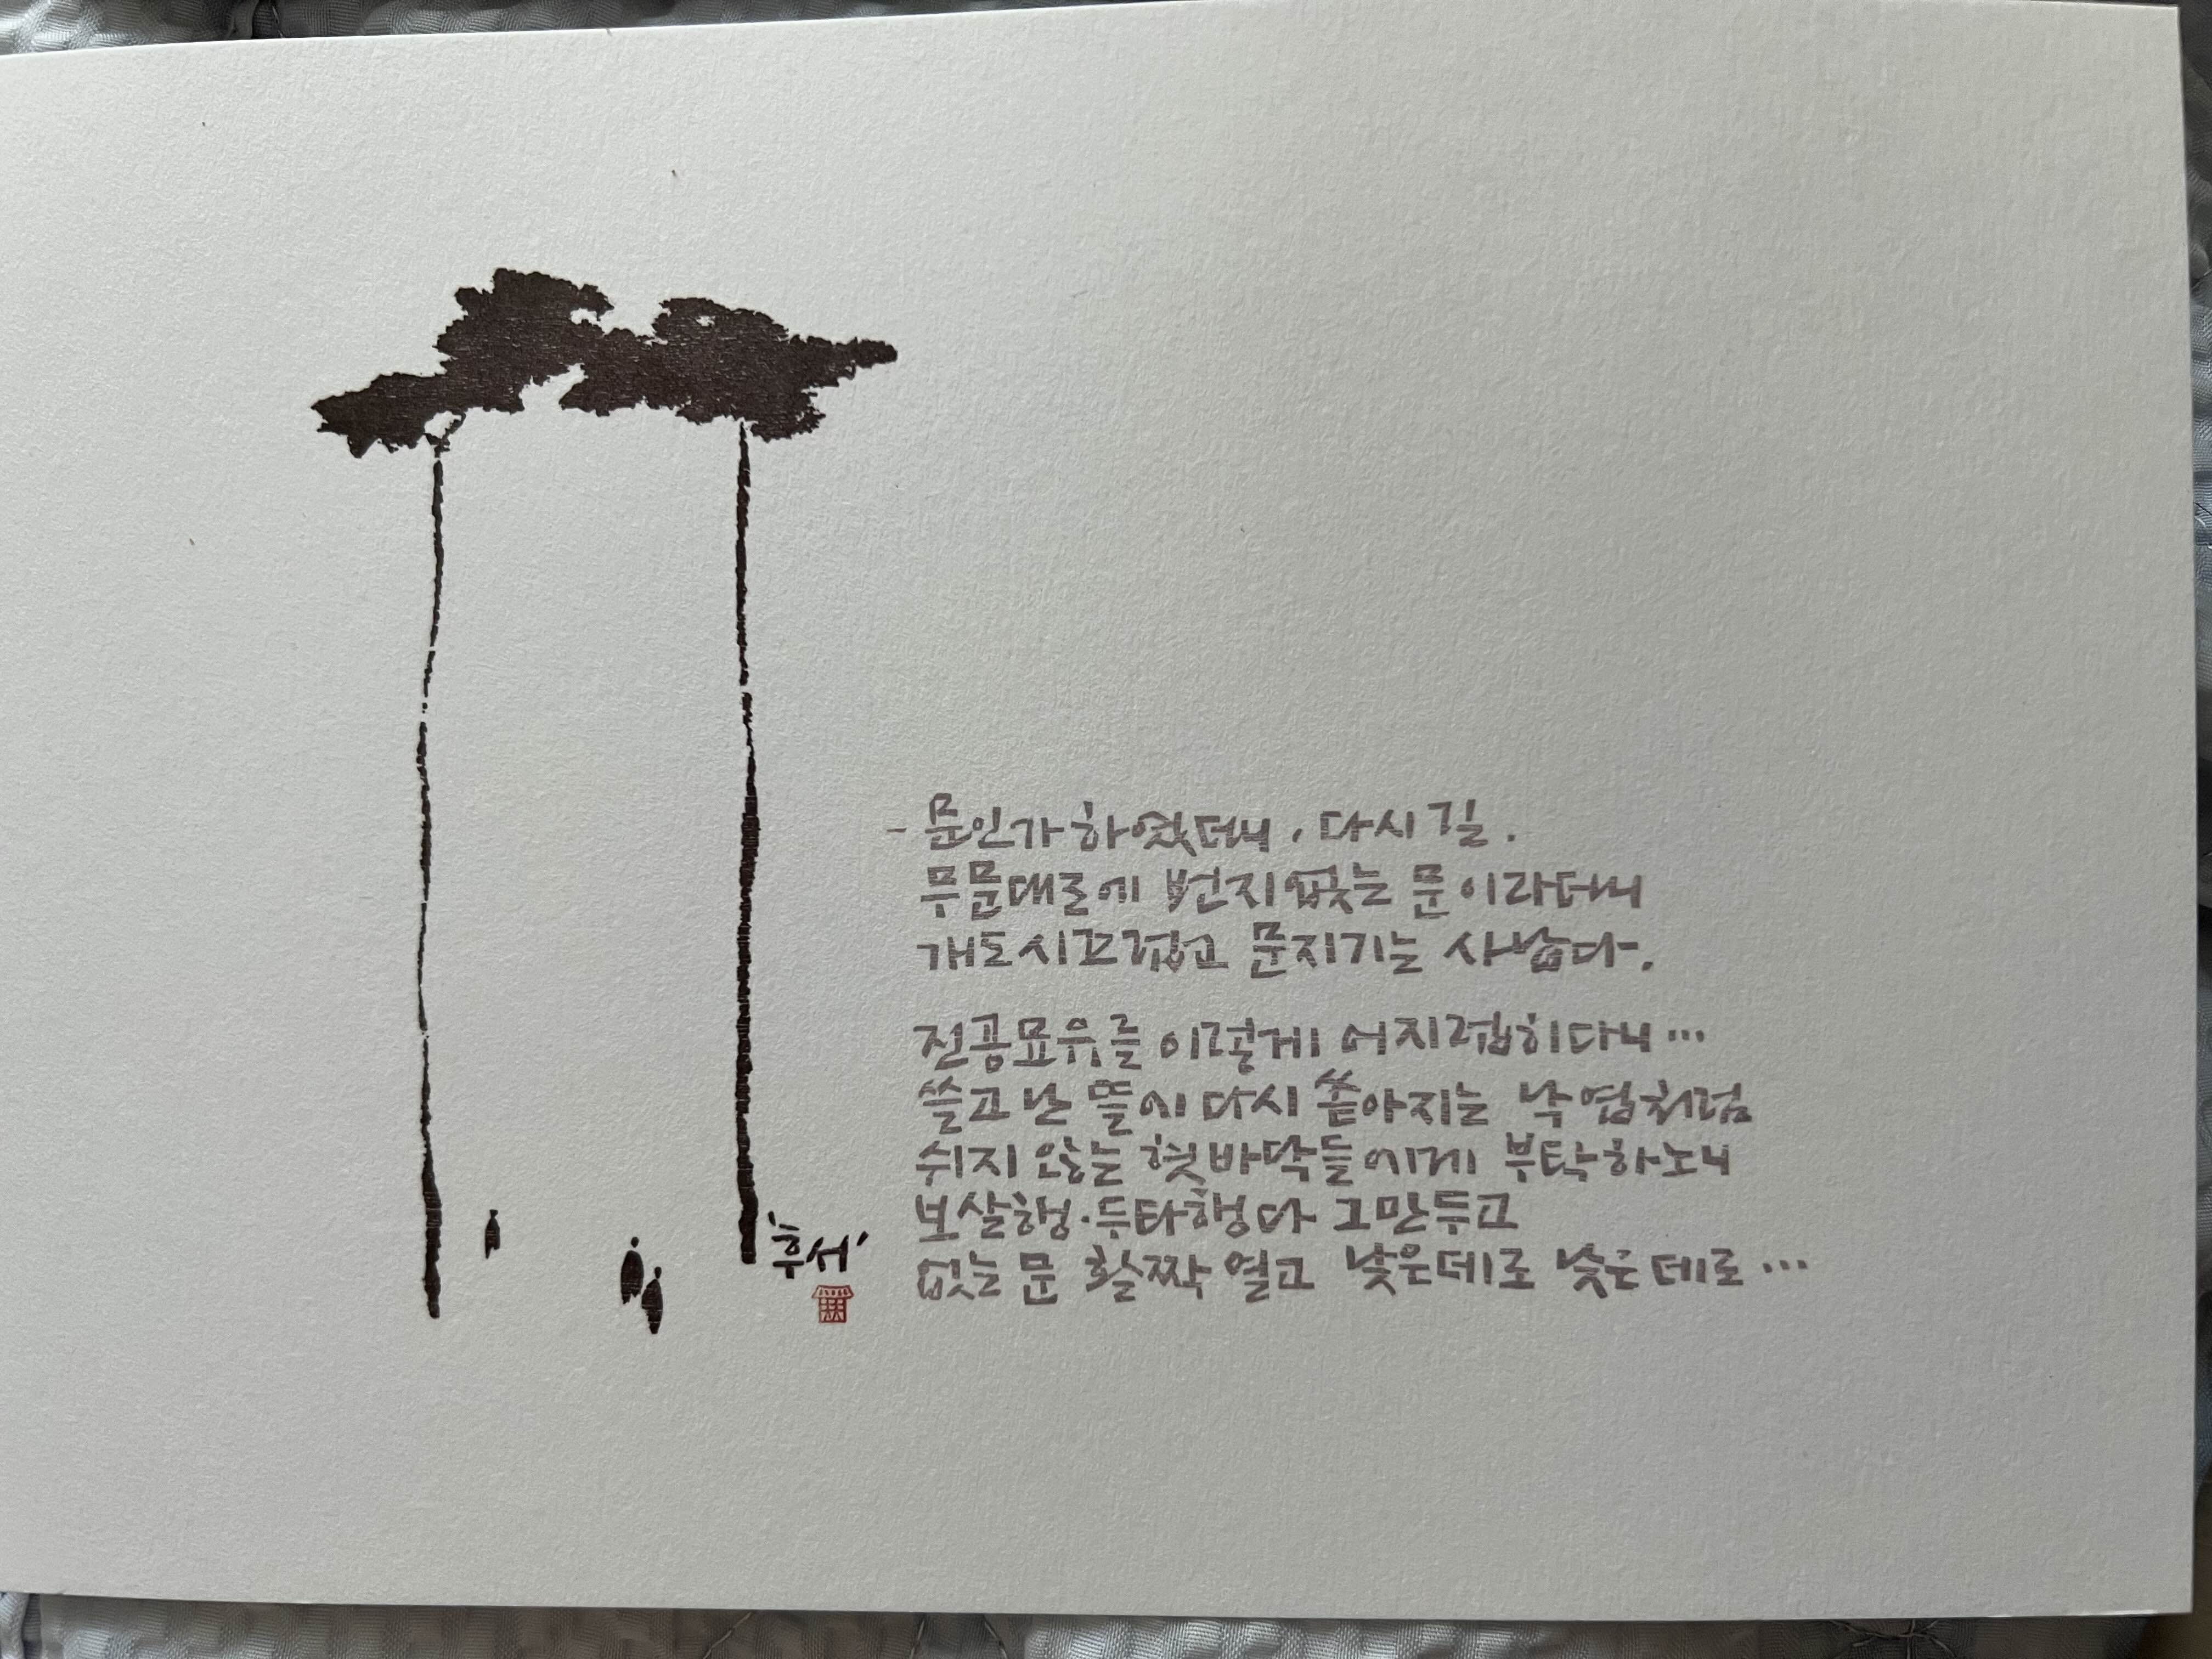 - 문인가 하였더니, 다시 길.
무문대로에 번지없는 문이라더니
개도 시끄럽고 문지기는 사납다.
진공묘유를 이렇게 어지럽히다니…
쓸고 난 뜰에 다시 쏟아지는 낙엽처럼
쉬지 않는 혓바닥들에게 부탁하노니
보살행·두타행 다 그만두고
없는 문 활짝 열고 낮은데로 낮은데로…